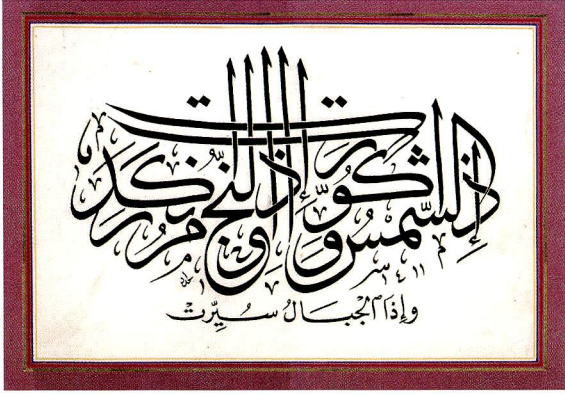 إِذَا الشَّمْسُ كُوِّرَتْ وَإِذَا النُّجُومُ انْكَدَرَتْ
١٤١١
وَإِذَا الْجِبَالُ سُيِّرَتْ